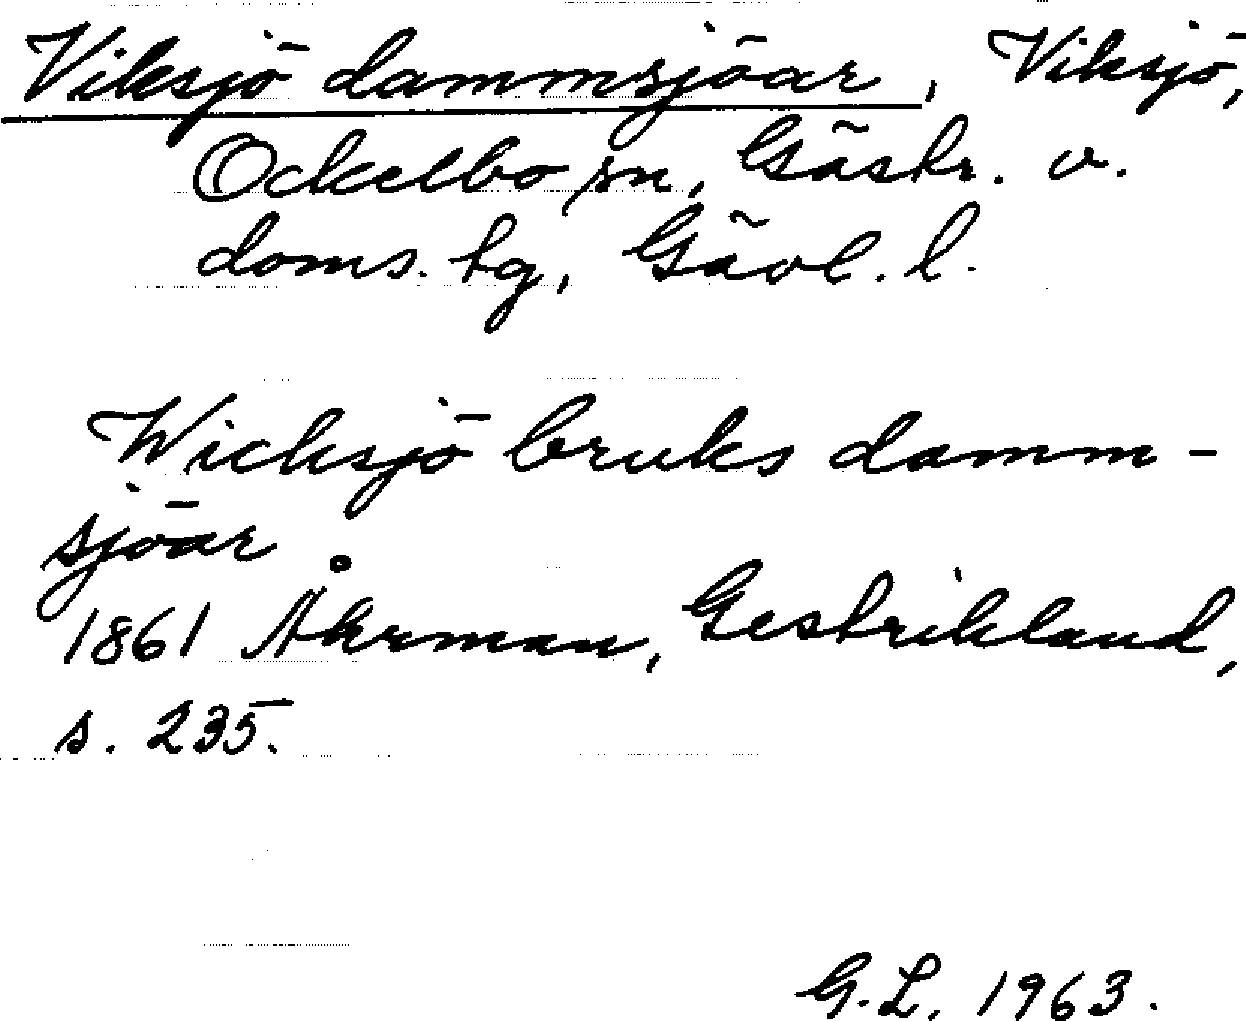 Viksjö dammsjöar, Viksjö,
Ockelbo sn, Gästr. v.
doms. tg, Gävl. l.
Wicksjö bruks damm-
sjöar
1861 Åkerman, Gestrikland,
s. 235.
G.L. 1963.